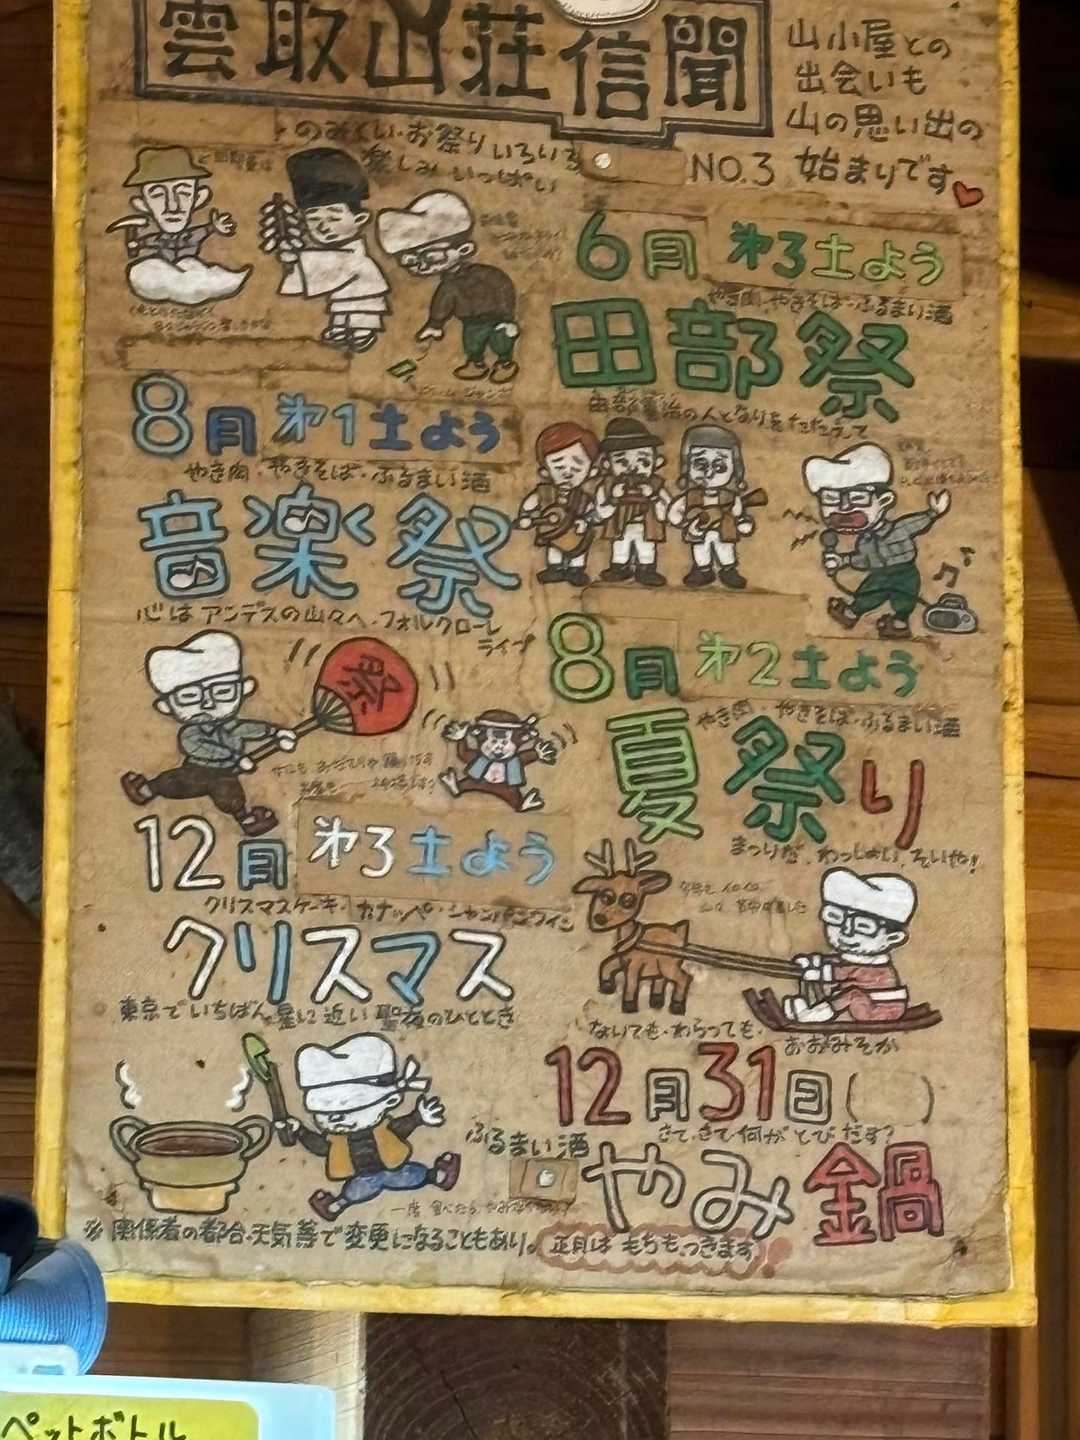 雲取山荘信聞
山小屋との
出会いも
山の思い出の
NO.3 始まりです
のみくい・お祭りいろいろ
楽しみいっぱい
6月 第3土よう
やき肉・やきそば・ふるまい酒
田部祭
田部重治の人となりをたたえて
8月 第1土よう
やき肉・やきそば・ふるまい酒
音楽祭
心はアンデスの山々へ・フォルクローレ
ライブ
8月 第2土よう
やき肉・やきそば・ふるまい酒
夏祭り
まつりだ、わっしょい、そいや!
祭
12月 第3土よう
クリスマスケーキ・カナッペ・シャンパンワイン
クリスマス
東京でいちばん星に近い聖夜のひととき
ないても・わらっても・
おおみそか
12月31日( )
さて、さて、何がとびだす?
ふるまい酒
やみ金鍋
※関係者の都合、天気等で変更になることもあり。
正月は もちもつきます
ペットボトル